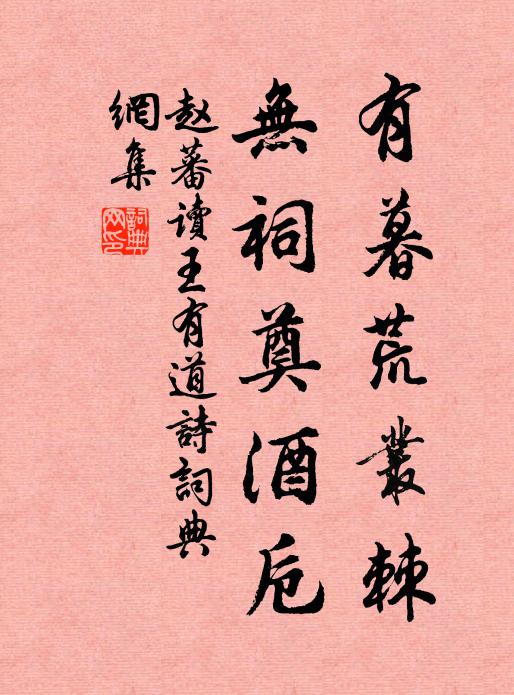 有暮荒叢棘
無祠奠酒卮
赵蕃讀王有道詩詞典
網集
詞典
网印